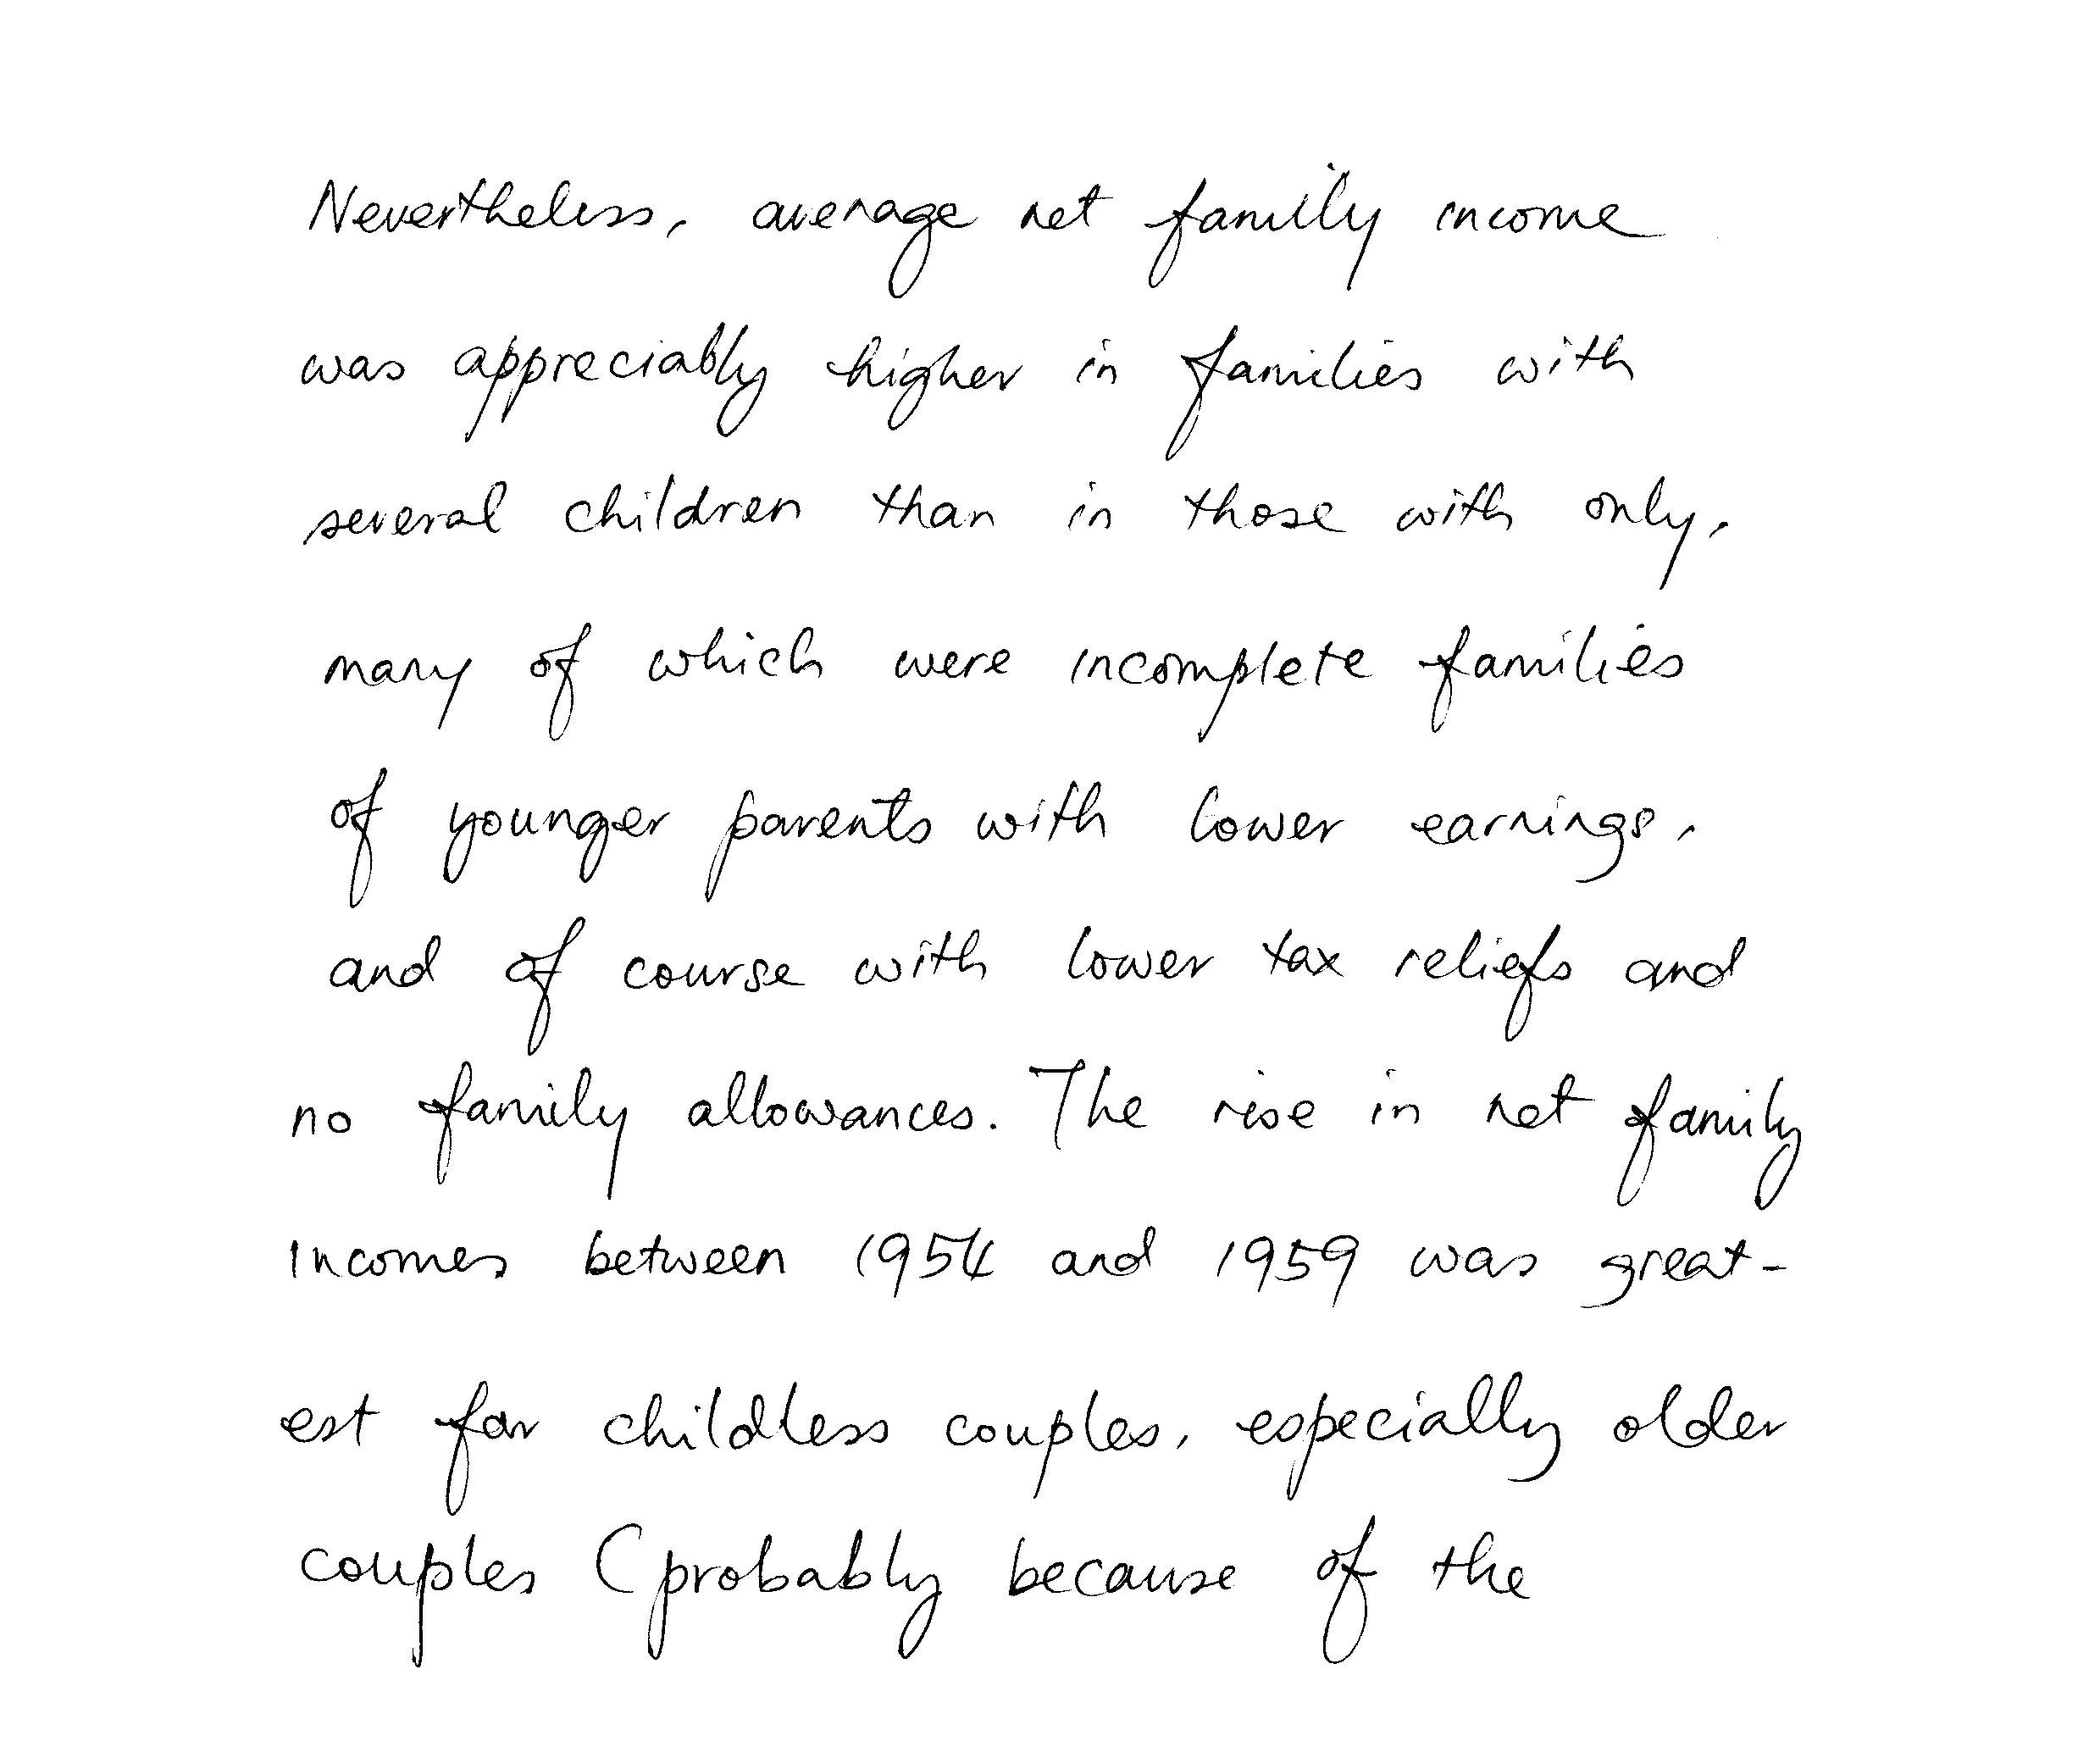 Nevertheless, average net family income
was appreciably higher in families with
several children than in those with only,
many of which were incomplete families
of younger parents with lower earnings,
and of course with lower tax reliefs and
no family allowances. The rise in net family
incomes between 1954 and 1959 was great-
est for childless couples, especially older
couples (probably because of the